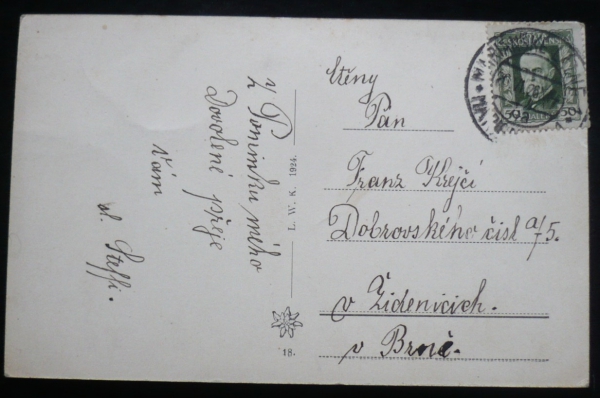 z Pomniku mého
Dovolené přeje
Vám
sl. Steffi.
L. W. K. 1924.
18.
Ctěny
Pán
Franz Krejčí
Dobrovského čisl a/5.
v Židenicích.
v Brně.
50 50